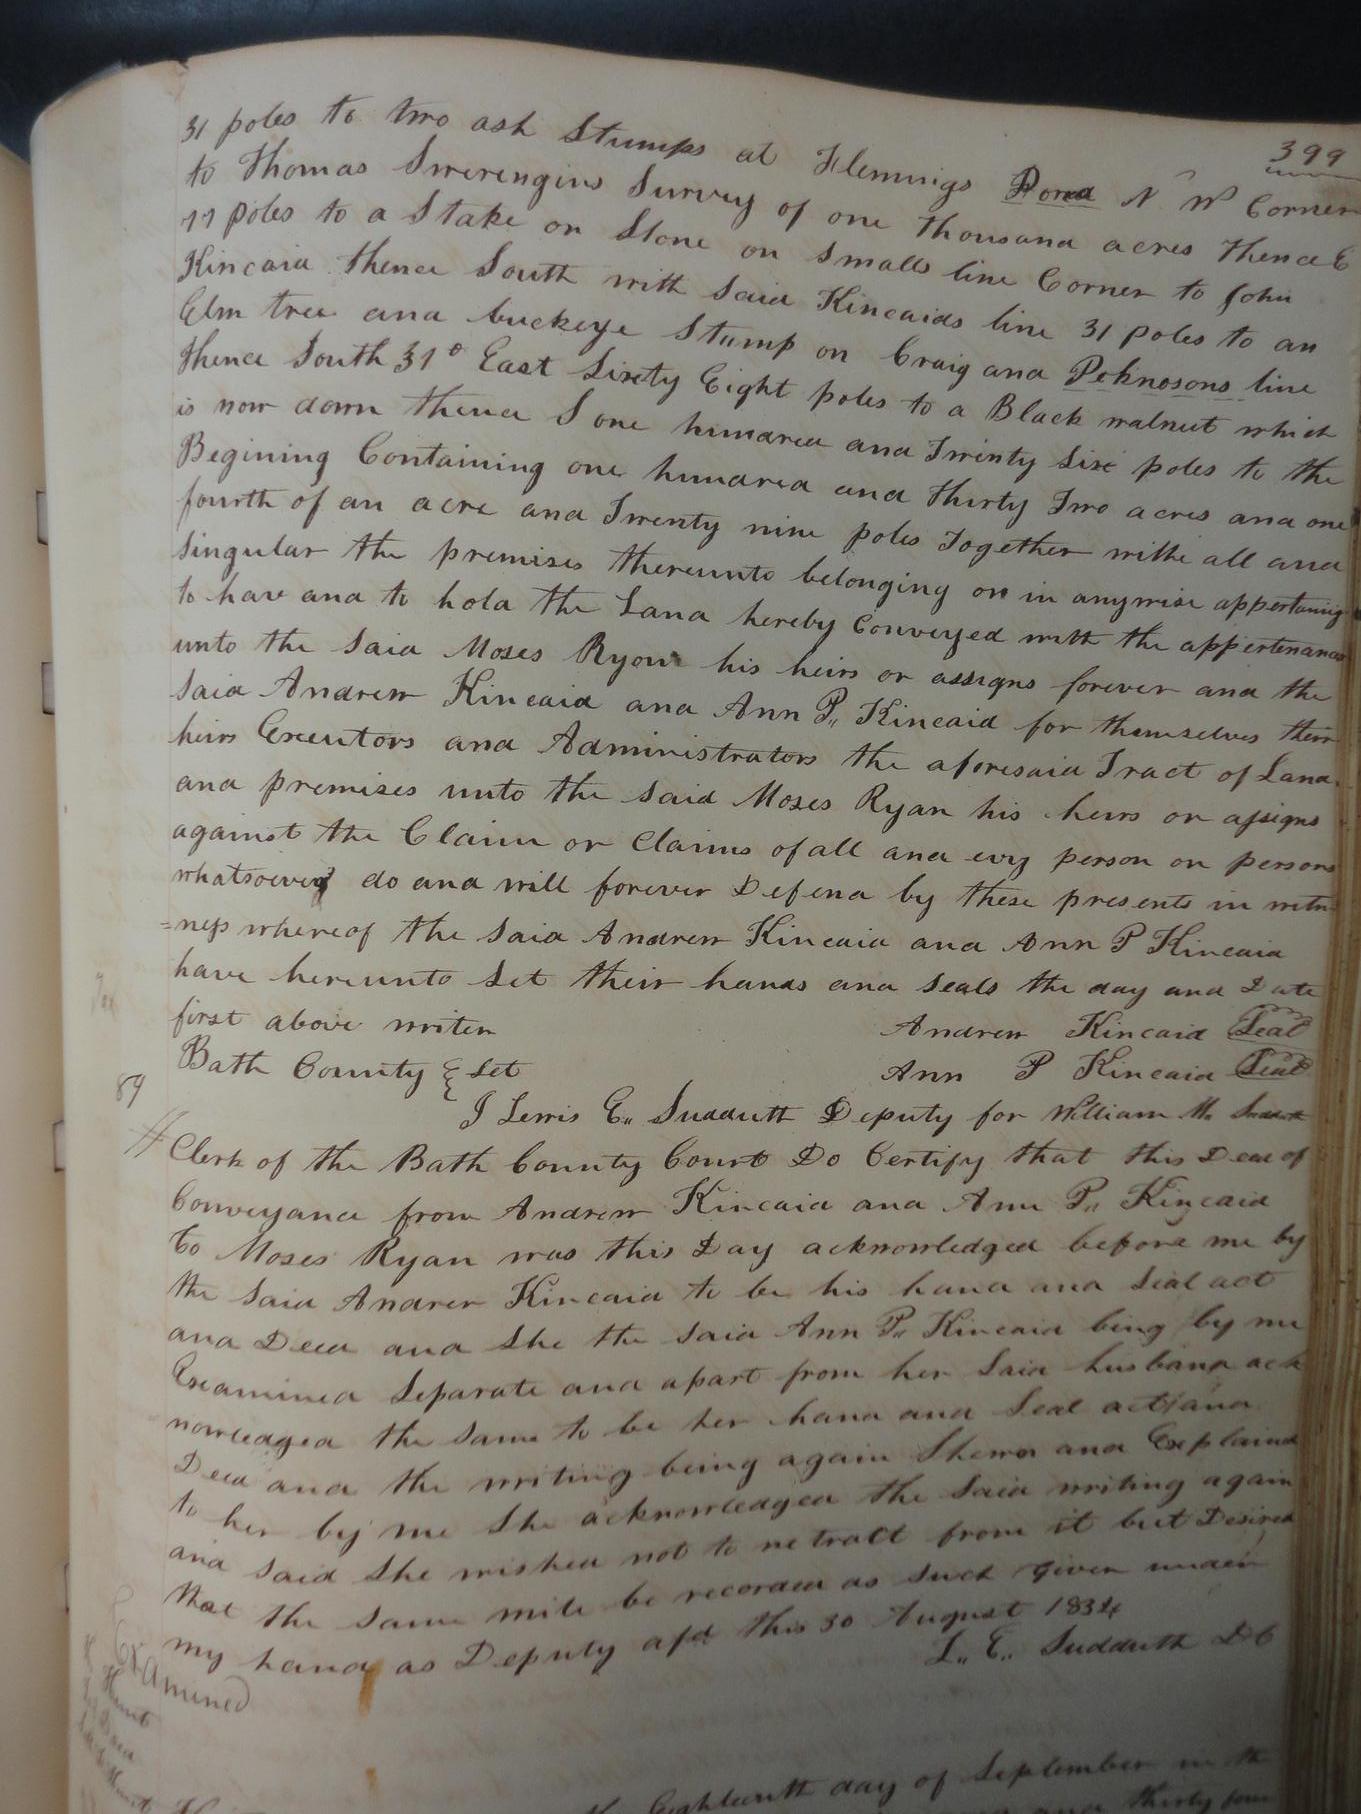 399
31 poles to two ash Stumps at Flemings Pond N W Corner
to Thomas Swerengins Survey of one thousand acres thence E
77 poles to a Stake or Stone on Smalls line Corner to John
Kincaid thence South with Said Kincaids line 31 poles to an
Elm tree and buckeye Stump on Craig and Peknosons line
thence South 31° East Sixty Eight poles to a Black walnut which
is now down thence S one hundred and Twenty Six poles to the
Begining Containing one hundred and thirty Two acres and one
fourth of an acre and Twenty nine poles Together withe all and
Singular the premises thereunto belonging or in anywise appertaining
to have and to hold the Land hereby Conveyed with the appertenances
unto the Said Moses Ryon his heirs or assigns forever and the
Said Andrew Kincaid and Ann P,, Kincaid for themselves their
heirs Executors and Administrators the aforesaid Tract of Land
and premises unto the Said Moses Ryan his heirs or assigns
against the Claim or Claims of all and evy person or persons
whatsoever do and will forever Defend by these presents in wit
=ness whereof the Said Andrew Kincaid and Ann P Kincaid
have hereunto Set their hands and Seals the day and Date
first above writen Andrew Kincaid Seal
Bath County Set Ann P Kincaid Seal
89
I Lewis E,, Sudduth Deputy for William M. Sudduth
Clerk of the Bath County Court Do Certify that this Deed of
Conveyance from Andrew Kincaid and Ann P,, Kincaid
To Moses Ryan was this Day acknowledged before me by
the Said Andrew Kincaid to be his hand and Seal act
and Deed and She the Said Ann P,, Kincaid being by me
Examined Separate and apart from her Said husband ack
nowledged the Same to be her hand and Seal act and
Deed and the writing being again Shewn and Explained
to her by me She acknowledged the Said writing again
and Said She wished not to retract from it but Desired
that the Same mite be recorded as Such given under
my hand as Deputy afd this 30 August 1834
L,, E,, Sudduth D C
Examined
Eighteenth day of September in the
and thirty four